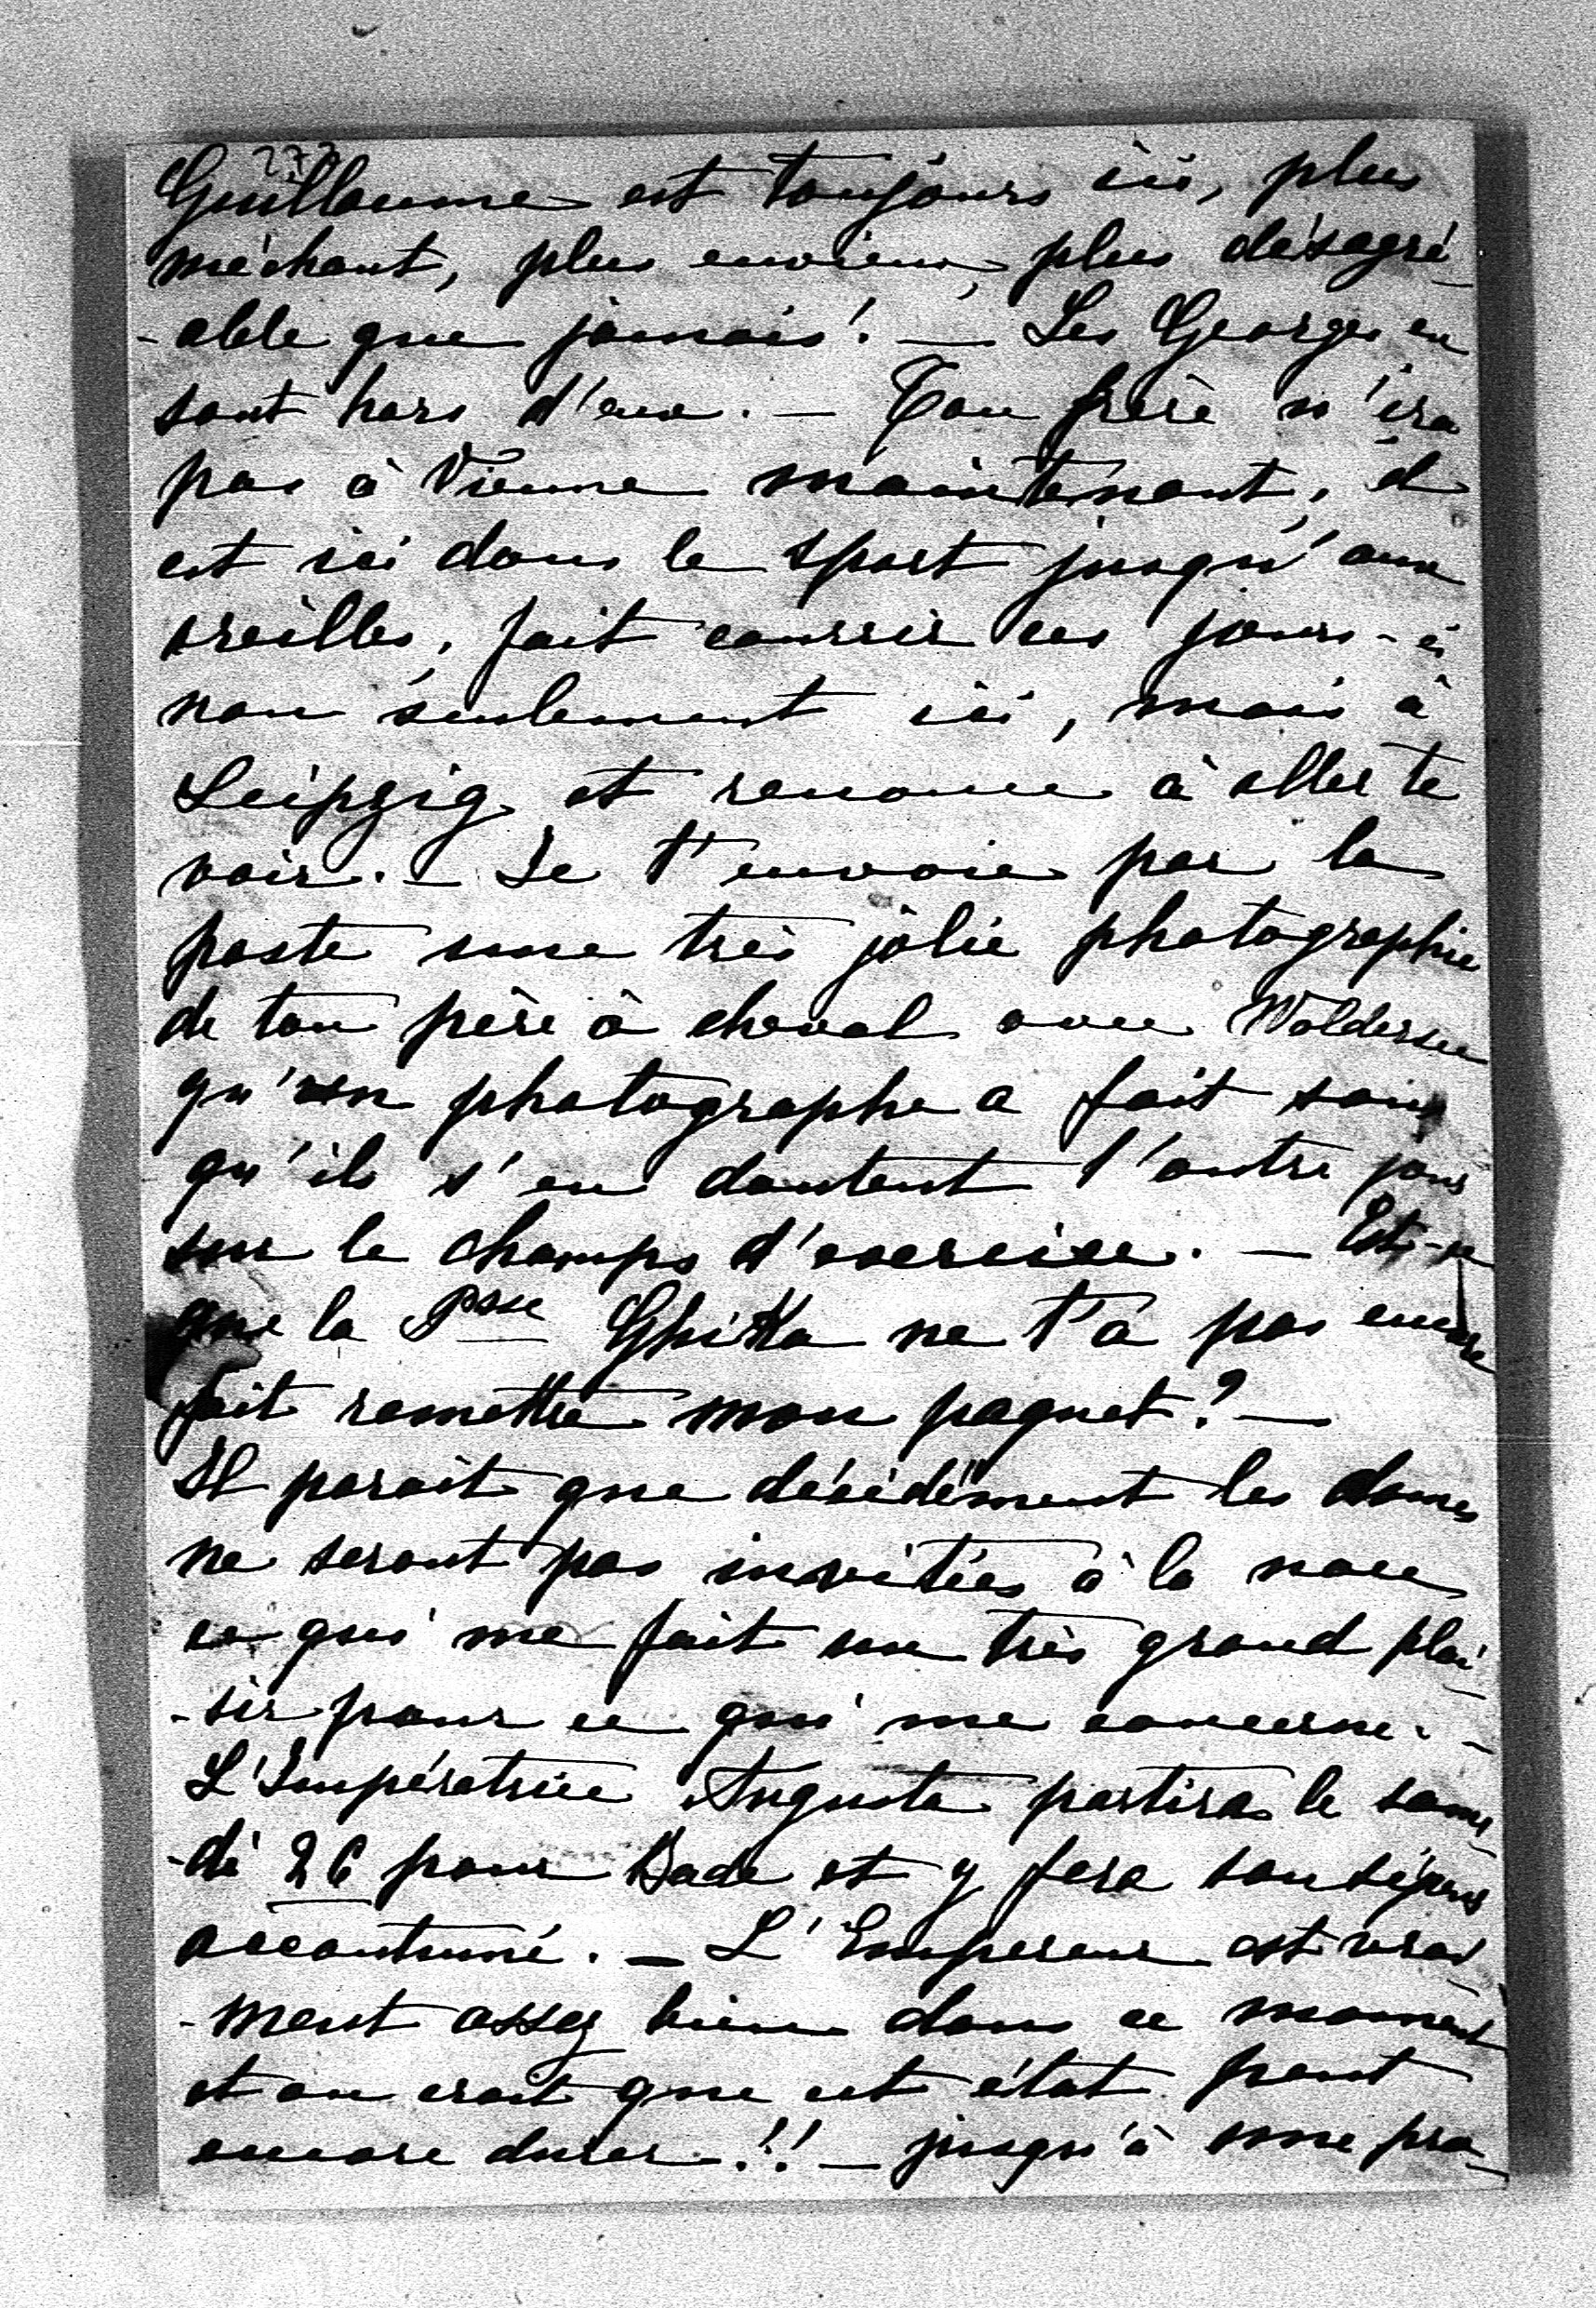 273
Guillaume est toujours ici, plus
méchant, plus envieux, plus désagré-
-able que jamais! — Les Georges en
sont hors d'eux. — Ton frère n'ira
pas à Vienne maintenant, il
est ici dans le sport jusqu'aux
oreilles, fait courrir ces jours-ci
non seulement ici, mais à
Leipzig et renonce à aller te
voir. — Je t'envoie par la
poste une très jolie photographie
de ton père à cheval avec Waldersee
qu'un photographe a fait sans
qu'ils s'en doutent l'autre jour
sur le champs d'exercice. — Est-ce
que la Psse Ghika ne t'a pas encore
fait remettre mon paquet? —
Il parait que décidément les dames
ne seront pas invitées à la noce
ce qui me fait un très grand plai-
-sir pour ce qui me concerne. —
L'Impératrice Augusta partira le same-
-di 26 pour Bade et y fera son séjour
accoutumé. — L'Empereur est vrai-
-ment assez bien dans ce moment
et on croit que cet état peut
encore durer!! — jusqu'à une pro-